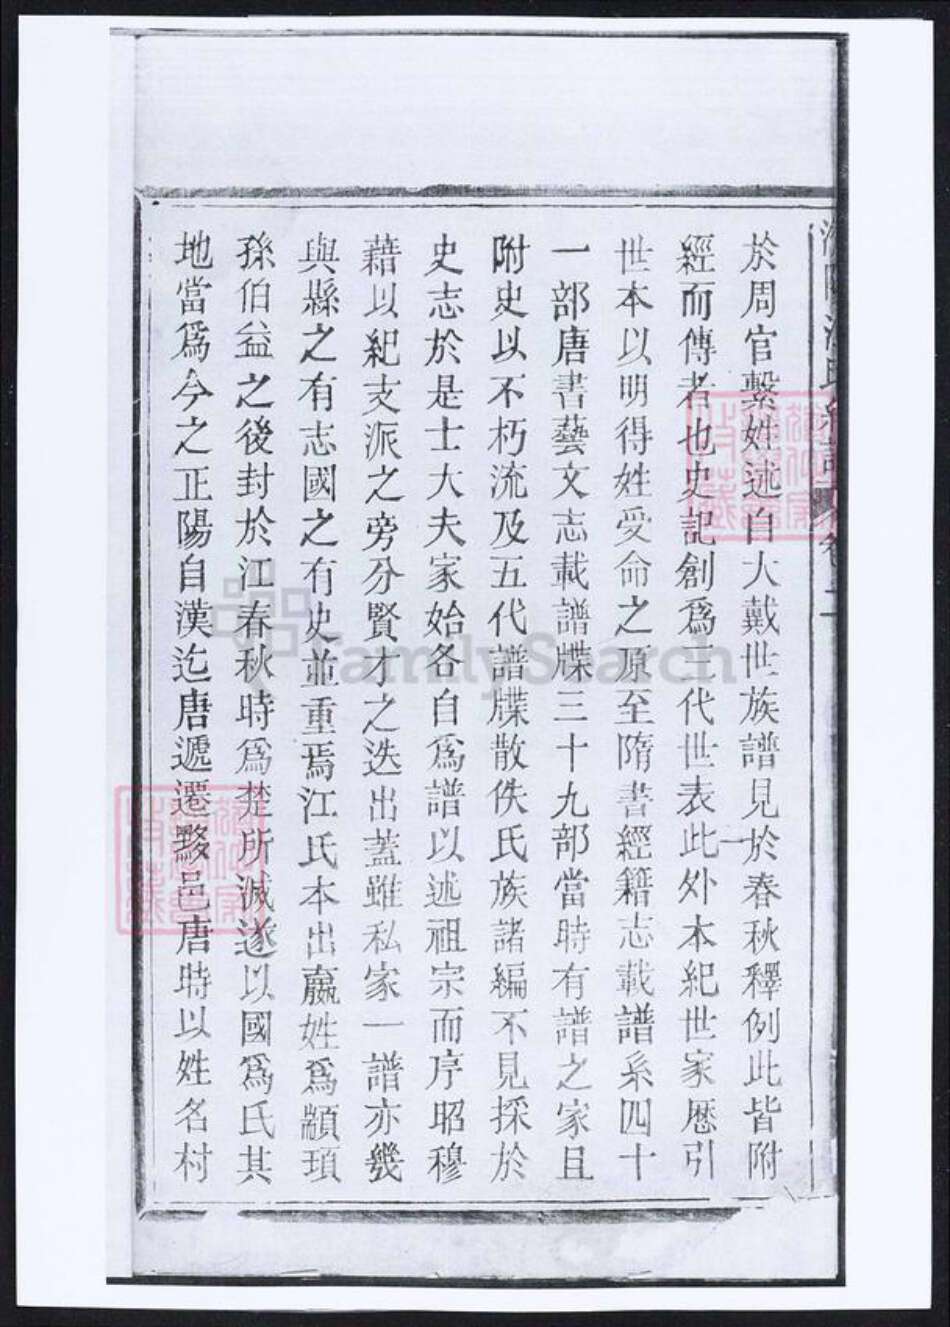 於周官繫姓述自大戴世族譜見於春秋釋例此皆附
經而傳者也史記創爲三代世表此外本紀世家歷引
世本以明得姓受命之原至隋書經籍志載譜系四十
一部唐書藝文志載譜牒三十九部當時有譜之家且
附史以不朽流及五代譜牒散佚氏族諸編不見採於
史志於是士大夫家始各自爲譜以述祖宗而序昭穆
藉以紀支派之旁分賢才之迭出蓋雖私家一譜亦幾
與縣之有志國之有史並重焉江氏本出嬴姓爲顓頊
孫伯益之後封於江春秋時爲楚所滅遂以國爲氏其
地當爲今之正陽自漢迄唐遞遷黟邑唐時以姓名村
FamilySearch